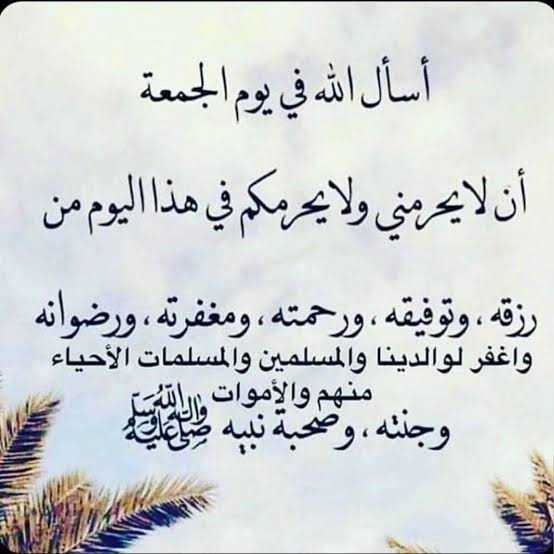 أسأل الله في يوم الجمعة
أن لا يحرمني ولا يحرمكم في هذا اليوم من
رزقه ، وتوفيقه ، ورحمته ، ومغفرته ، ورضوانه
واغفر لوالدينا والمسلمين والمسلمات الأحياء
منهم والأموات
وجنته ، وصحبة نبيه صلى الله عليه وسلم